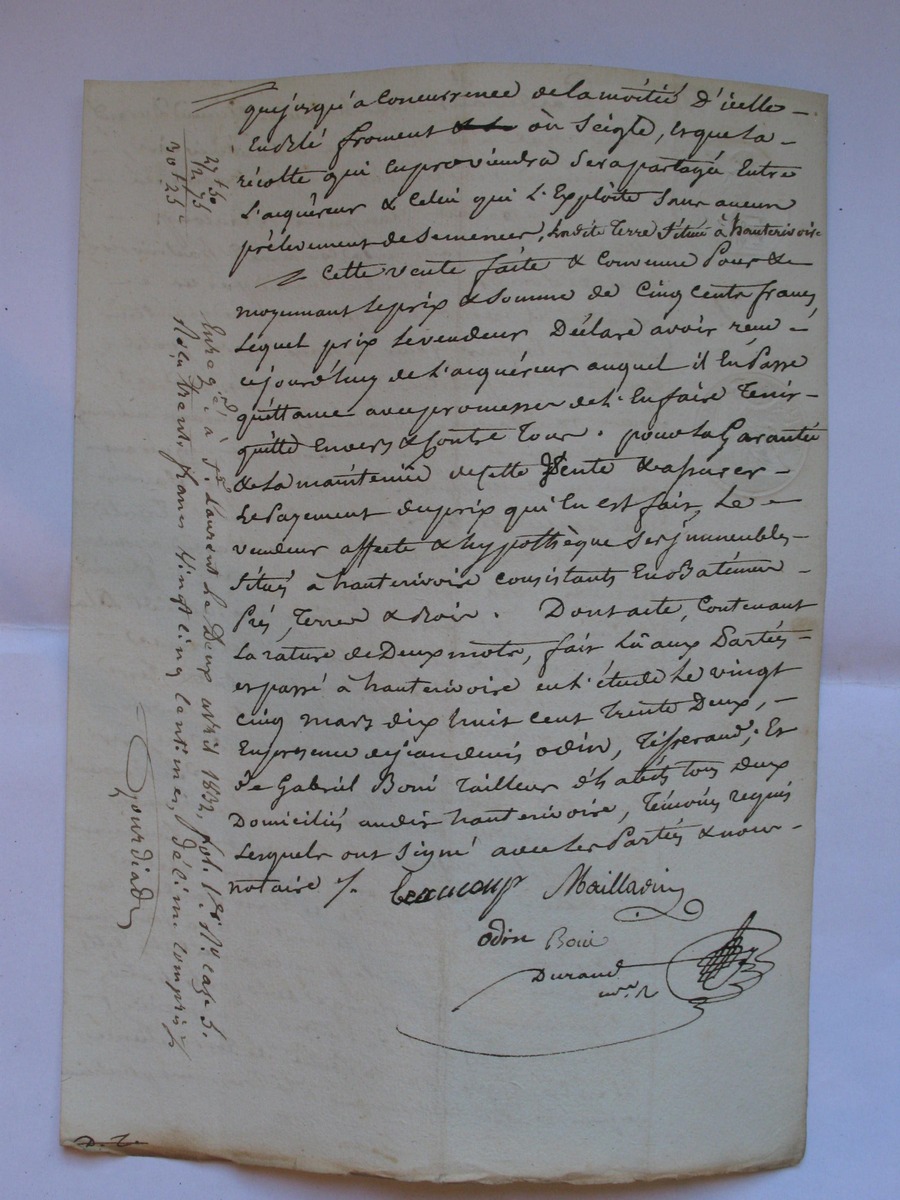 que jusqu'à Concurrence de la moitié d'icelle
En blé froment ou Seigle, Et que la
récolte qui En proviendra Sera partagée Entre
L'acquéreur & Celui qui L'Exploite Sans aucun
prélevement de Semences, Terre Située à hauterivoire
Cette vente faite & Convenue Pour &
moyennant le prix & Somme de Cinq Cents francs
Lequel prix Le vendeur Déclare avoir reçu
cejourd'huy de L'acquéreur auquel il En Passe
quittance avec promesse de L'En faire Tenir
quitte Envers & Contre Tous. pour La Garantie
& La maintenüe de Cette Vente & assurer
Le Payement du prix qui En est fait, Le
vendeur affecte & hypothèque Ses jmmeubles
Situés à hauterivoire consistants En Batiments
Prés, Terres & Bois. Dont acte, Contenant
La rature de Deux mots, fait Lû aux Parties
et passé à hauterivoire en L'étude Le vingt
cinq mars dix huit cent Trente Deux,
En présence de jean denis odin, Tisserand, Et
de Gabriel Boni Tailleur d'habits tous Deux
Domiciliés audit hauterivoire, Témoins requis
Lesquels ont Signé avec Les Parties & nous
notaire
Beaucoup Maillavin
odin Boni
Durand
27 f 50
2 75
30 f 25 c
Enregé à St Laurent Le Deux avril 1832, fol. 18 Vo case 5.
Reçu trente francs vingt cinq centimes, Décime compris
Gourdiad